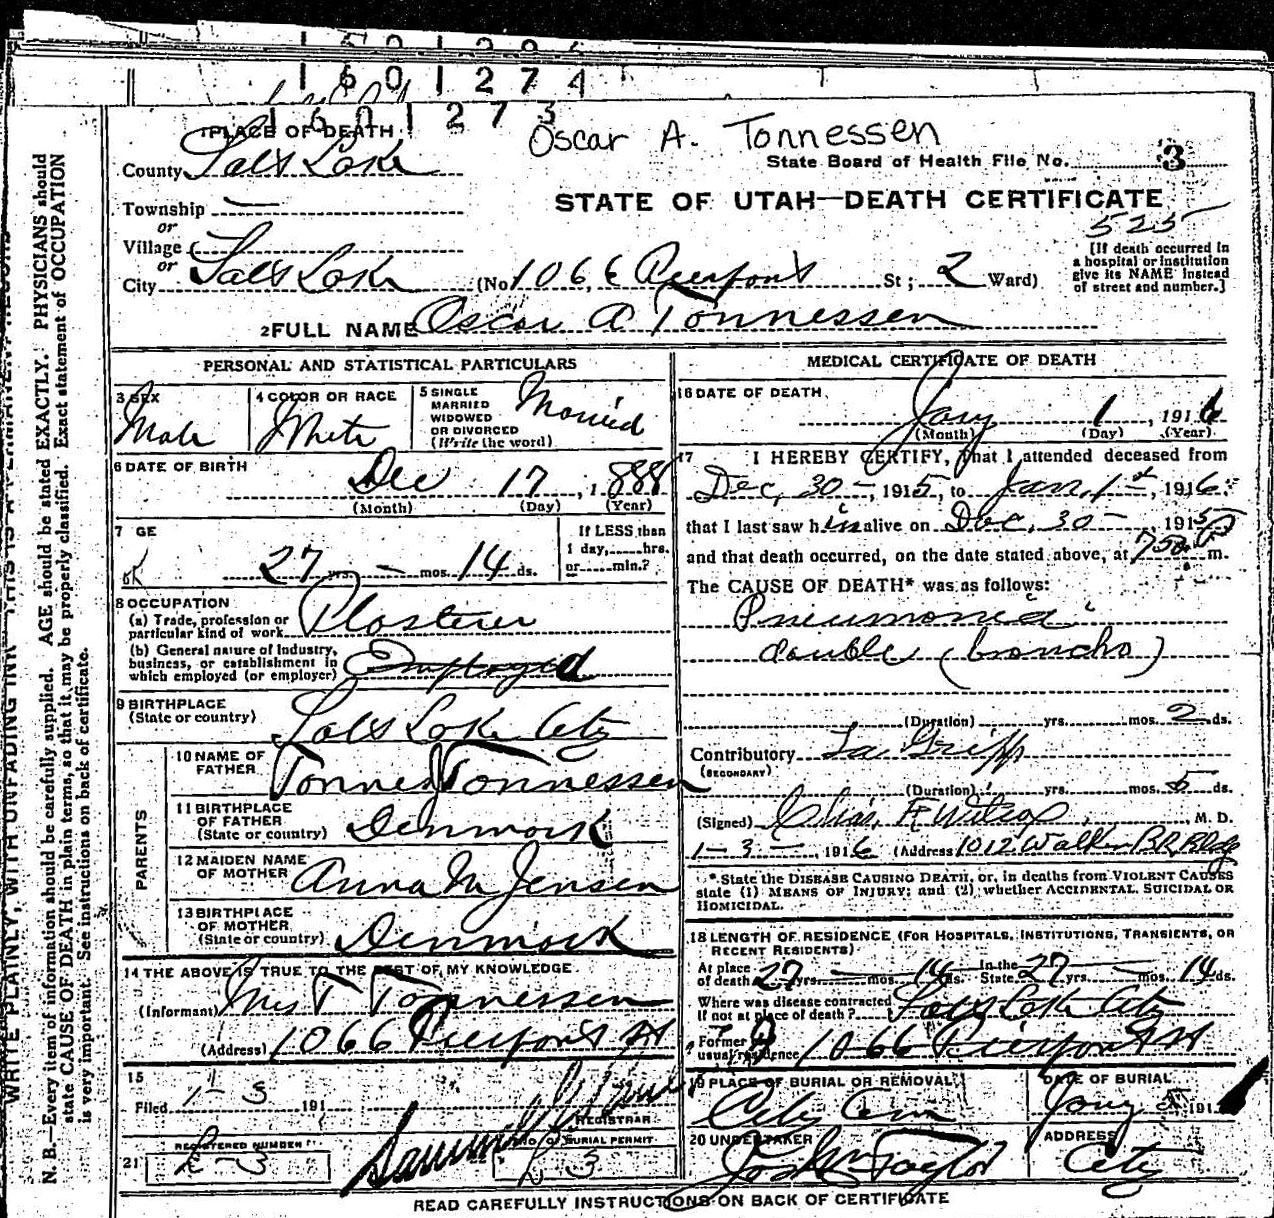 1 6 0 1 2 7 4
1 6 0 1 2 7 3
Oscar A. Tonnessen
1 PLACE OF DEATH
State Board of Health File No. 3
County Salt Lake
STATE OF UTAH—DEATH CERTIFICATE
525
Township —
or
Village
or
City Salt Lake (No 1066 Pierpont St; 2 Ward)
[If death occurred in
a hospital or institution
give its NAME instead
of street and number.]
2 FULL NAME Oscar A Tonnessen
PERSONAL AND STATISTICAL PARTICULARS
3 SEX
Male
4 COLOR OR RACE
White
5 SINGLE
MARRIED
WIDOWED
OR DIVORCED
(Write the word)
Married
6 DATE OF BIRTH
Dec 17, 1888
(Month) (Day) (Year)
7 GE
27 yrs. — mos. 14 ds.
If LESS than
1 day, hrs.
or min.?
ok
8 OCCUPATION
(a) Trade, profession or
particular kind of work Plasterer
(b) General nature of Industry,
business, or establishment in
which employed (or employer) Employed
9 BIRTHPLACE
(State or country) Salt Lake City
PARENTS
10 NAME OF
FATHER Tonnes Tonnessen
11 BIRTHPLACE
OF FATHER
(State or country) Denmark
12 MAIDEN NAME
OF MOTHER Anna M Jensen
13 BIRTHPLACE
OF MOTHER
(State or country) Denmark
14 THE ABOVE IS TRUE TO THE BEST OF MY KNOWLEDGE.
(Informant) Mrs T Tonnessen
(Address) 1066 Pierpont St
15
Filed 1-3 191
REGISTRAR
REGISTERED NUMBER
NO. OF BURIAL PERMIT
21
3
MEDICAL CERTIFICATE OF DEATH
16 DATE OF DEATH
Jany 1, 1916
(Month) (Day) (Year)
17 I HEREBY CERTIFY, That I attended deceased from
Dec, 30—, 1915, to Jan, 1st, 1916.
that I last saw him alive on Dec, 30—, 1915
and that death occurred, on the date stated above, at 750 P m.
The CAUSE OF DEATH* was as follows:
Pneumonia
double (broncho)
(Duration) yrs. mos. 2 ds.
Contributory La Gripp
(SECONDARY)
(Duration) yrs. mos. 5 ds.
(Signed) Chas, F, Wilcox, M. D.
1-3-, 1916 (Address 1012 Walker BK, Bldg
*State the DISEASE CAUSING DEATH, or, in deaths from VIOLENT CAUSES
state (1) MEANS OF INJURY; and (2) whether ACCIDENTAL, SUICIDAL OR
HOMICIDAL.
18 LENGTH OF RESIDENCE (FOR HOSPITALS, INSTITUTIONS, TRANSIENTS, OR
RECENT RESIDENTS)
At place
of death 27 yrs. — mos. 14 ds. In the
State 27 yrs. — mos. 14 ds.
Where was disease contracted
If not at place of death? Salt Lake City
Former or
usual residence 1066 Pierpont St
19 PLACE OF BURIAL OR REMOVAL
City Cem
DATE OF BURIAL
Jany 191
20 UNDERTAKER
Jos Wm Taylor
ADDRESS
City
READ CAREFULLY INSTRUCTIONS ON BACK OF CERTIFICATE
WRITE PLAINLY, WITH UNFADING INK—THIS IS A PERMANENT RECORD
N. B.—Every item of information should be carefully supplied. AGE should be stated EXACTLY. PHYSICIANS should
state CAUSE OF DEATH in plain terms, so that it may be properly classified. Exact statement of OCCUPATION
is very important. See instructions on back of certificate.